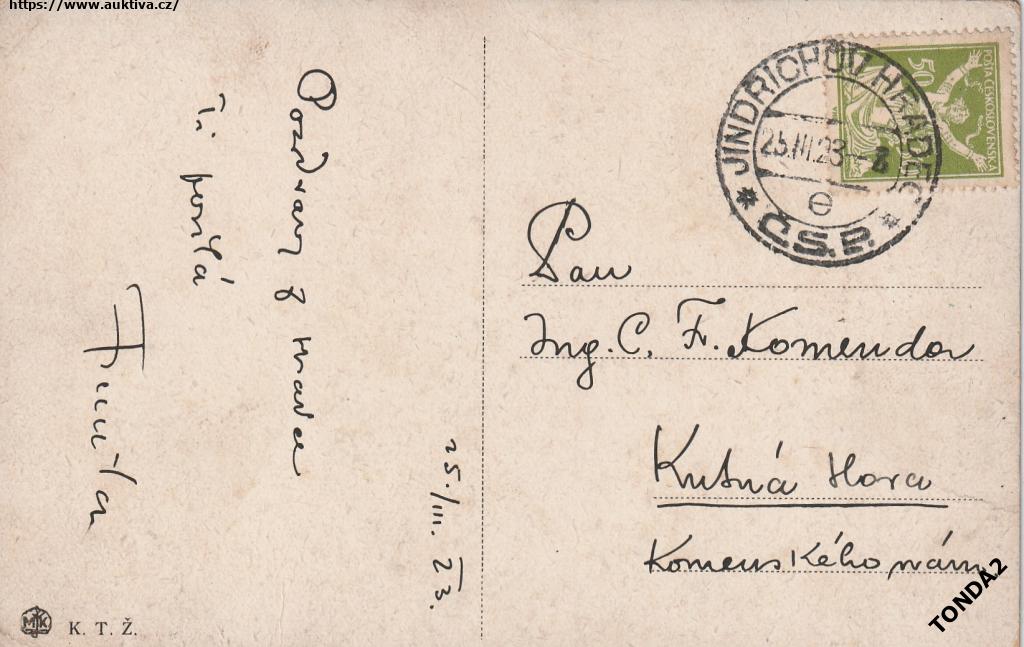 https://www.auktiva.cz/
Pozdravy z Hradce
Ti posílá
25./III. 23.
JINDŘICHŮV HRADEC
25.III.23-8
e
Č.S.P.
50
POŠTA ČESKOSLOVENSKÁ
Pan
Ing. C. F. Komendor
Kutná Hora
Komenského nám.
K. T. Ž.
TONDA2